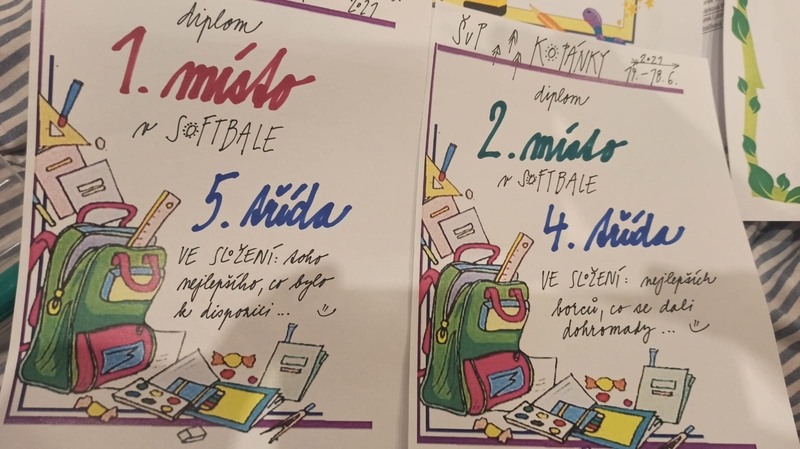 2021
diplom
1. místo
v SOFTBALE
5. třída
VE SLOŽENÍ: toho
nejlepšího, co bylo
k dispozici...
ŠvP KOPÁNKY 2021
14.-18.6.
diplom
2. místo
v SOFTBALE
4. třída
VE SLOŽENÍ: nejlepších
borců, co se dali
dohromady...